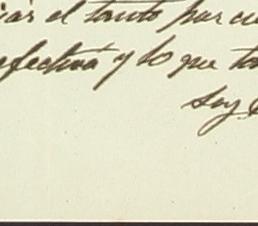 el tanto por
efectiva y lo que
soy